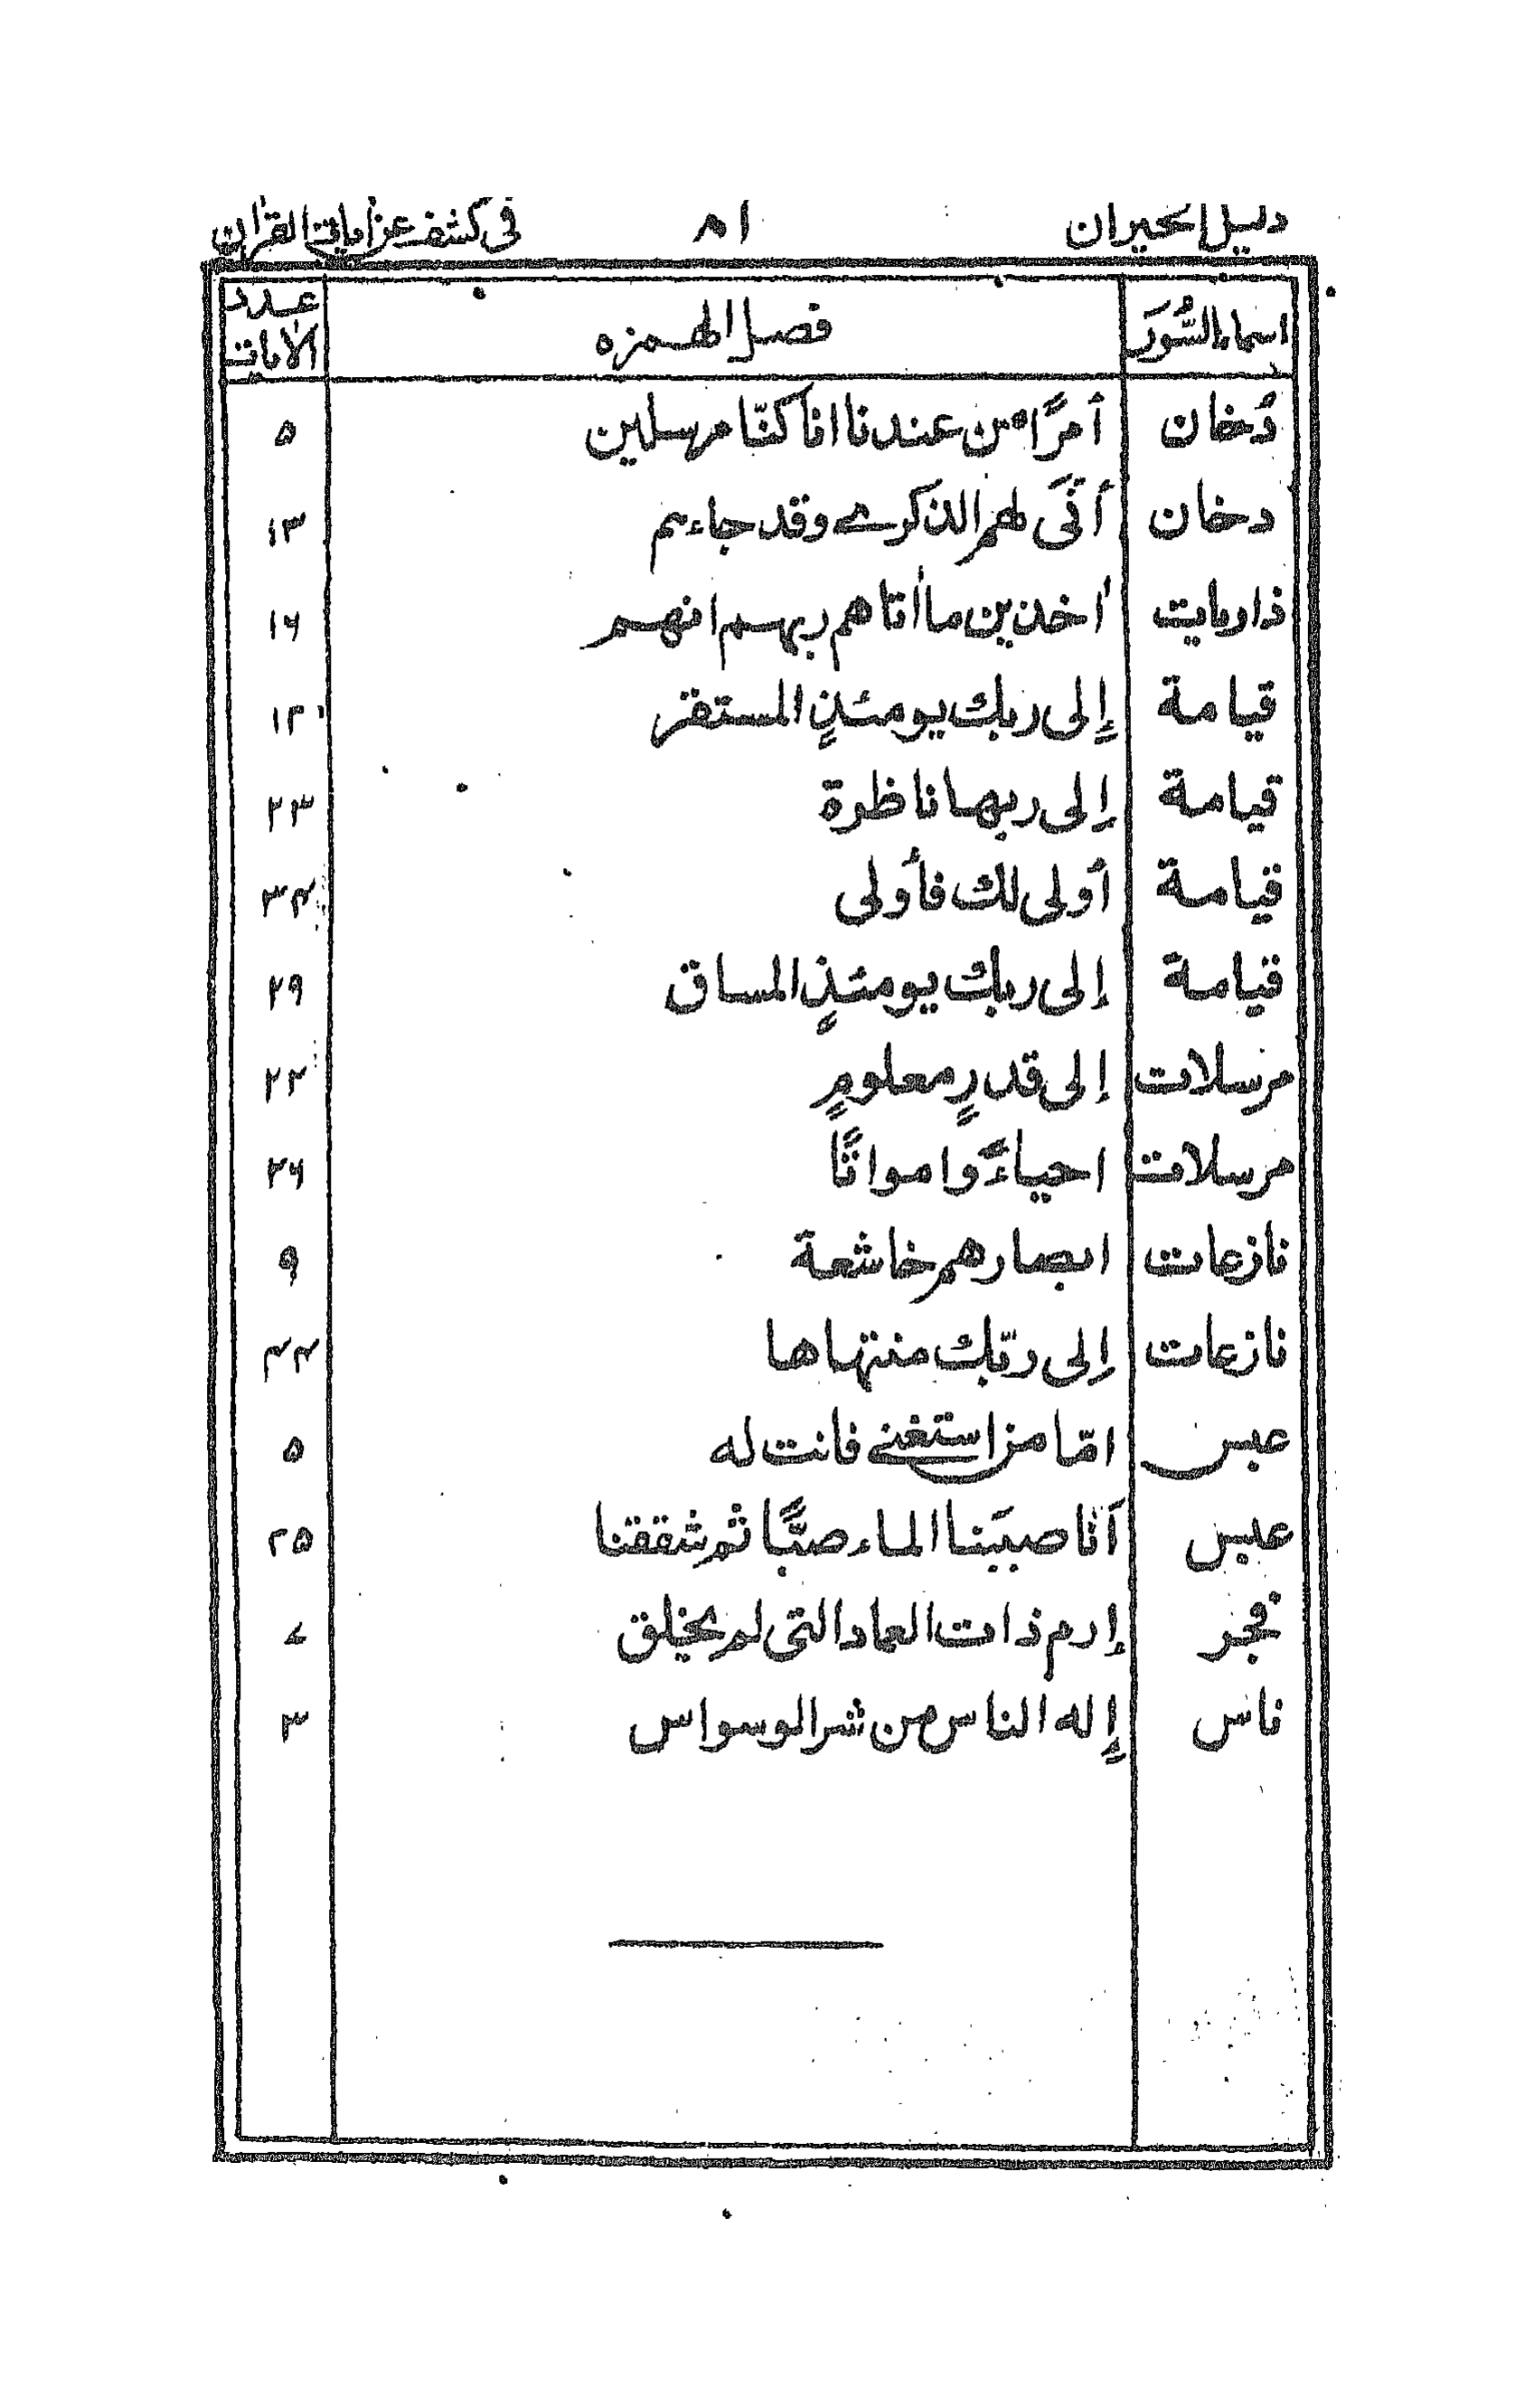 دليل الحيران ٨١ في كشف عن اٰيات القراٰن
اسماء السُّوَر فصل الهمزه عدد الاٰيات
دُخان أمرًا من عندنا انا كنّا مرسلين ٥
دخان أنّى لهم الذكرے وقد جاءهم ١٣
ذاريات اٰخذين ما اٰتاهم ربهم انهم ١٦
قيامة إِلى ربك يومئذٍ المستقر ١٢
قيامة إلى ربها ناظرة ٢٣
قيامة أولى لك فأولى ٣٤
قيامة إلى ربك يومئذٍ المساق ٢٩
مرسلات إلى قدرٍ معلومٍ ٢٢
مرسلات احياءً وامواتًا ٢٦
نازعات ابصارهم خاشعة ٩
نازعات إلى ربّك منتهاها ٤٤
عبس امّا من استغنے فانت له ٥
عبس اَنّا صببَنا الماء صبًّا ثم شققنا ٢٥
فجر إرم ذات العماد التى لم يخلق ٧
ناس إِله الناس من شر الوسواس ٣